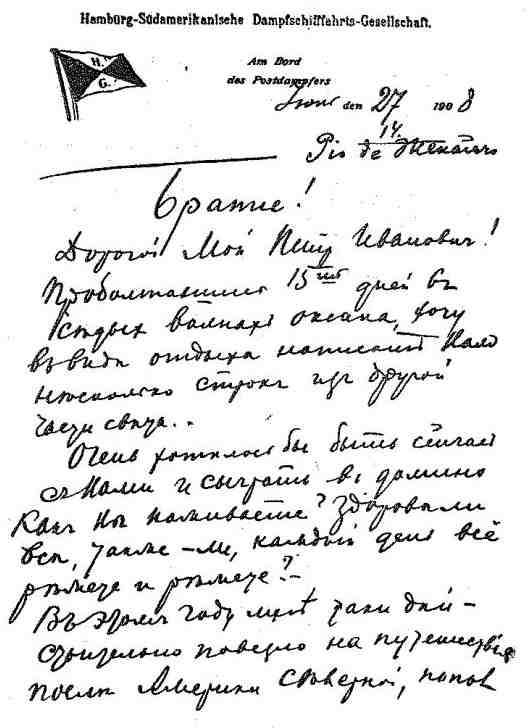 Hamburg-Südamerikanische Dampfschifffahrts-Gesellschaft.
H.
G.
Am Bord
des Postdampfers
den 27 1908
14.
Rio de
Братие!
Дорогой Мой Петр Иванович!
Проболтавшись 15 дней въ
волнахъ океана, хочу
въ виде отдыха написать Вамъ
несколько строкъ изъ другой
части света..
Очень хотелось бы быть сейчасъ
съ Вами и сыграть въ домино
Какъ Вы поживаете? Здоровы ли
все, также-ли, каждый день всё
режете и режете?-
Въ этомъ году мне таки дей-
ствительно повезло на путешествiя
после Америки северной, попов